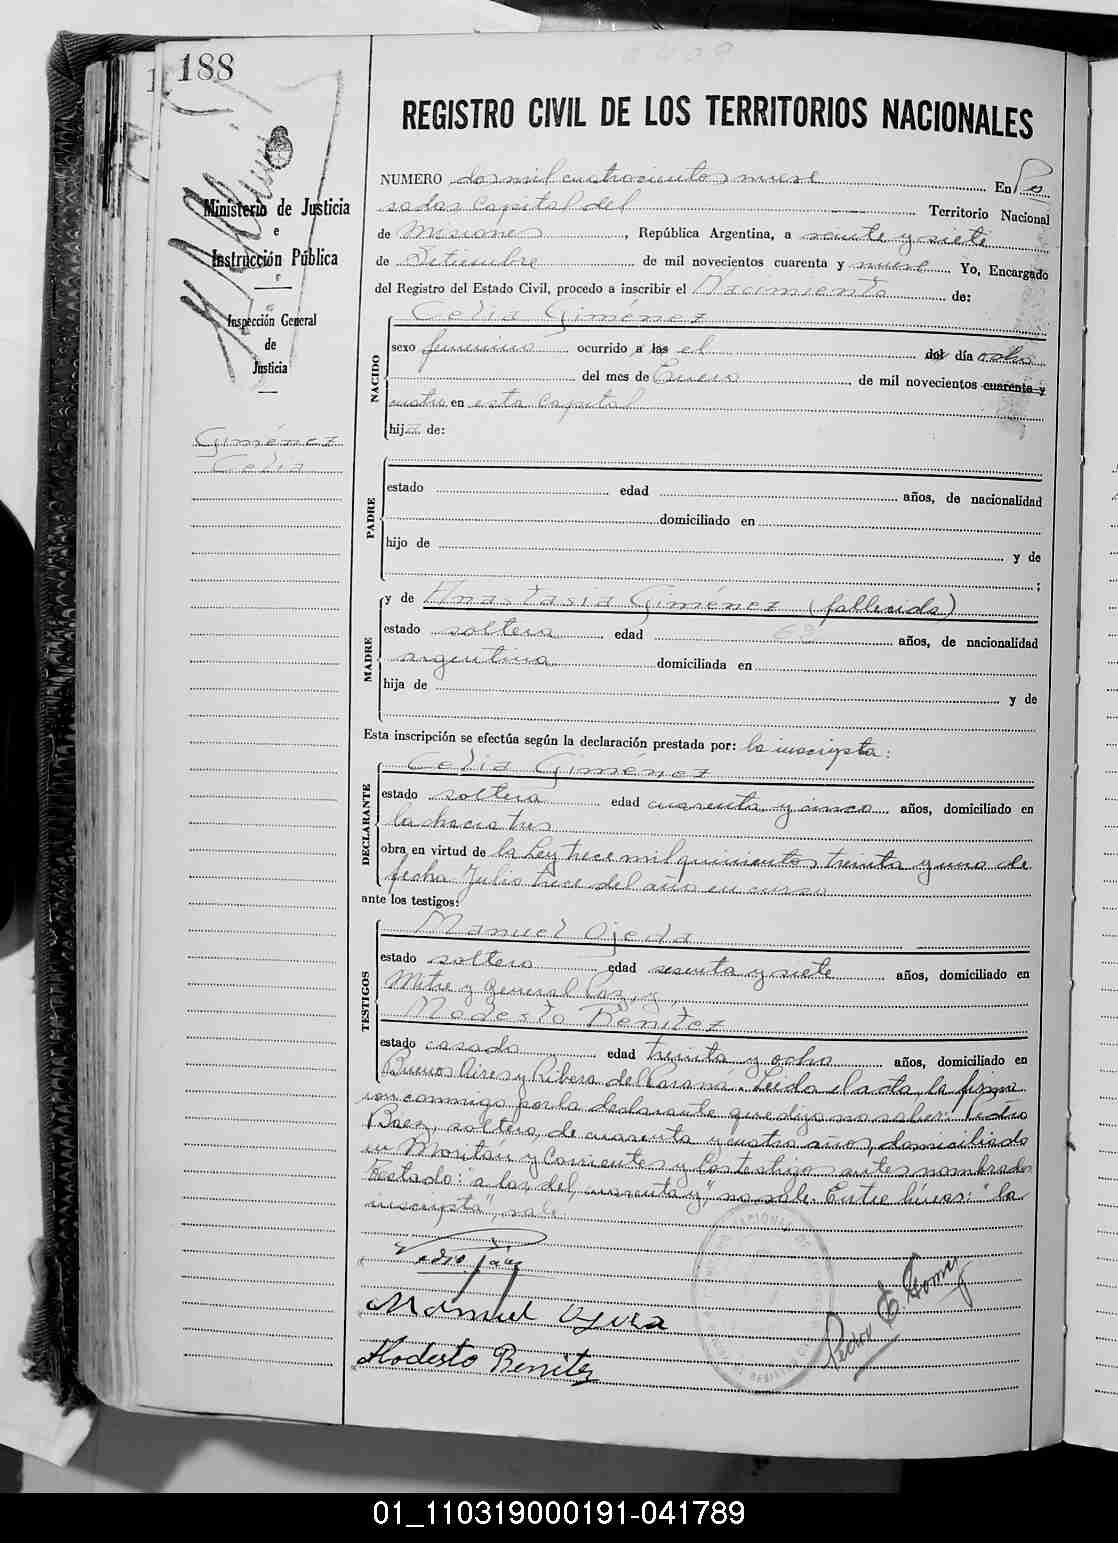 188
REGISTRO CIVIL DE LOS TERRITORIOS NACIONALES
Ministerio de Justicia
e
Instrucción Pública
Inspección General
de
Justicia
Giménez
Celia
NUMERO dos mil cuatrocientos nueve En Po
sadas Capital del Territorio Nacional
de Misiones, República Argentina, a veinte y siete
de Setiembre de mil novecientos cuarenta y nueve Yo, Encargado
del Registro del Estado Civil, procedo a inscribir el Nacimiento de:
NACIDO
Celia Giménez
sexo femenino ocurrido a las el del día ocho
del mes de Enero de mil novecientos cuarenta y
cuatro en esta Capital
hija de:
PADRE
estado edad años, de nacionalidad
domiciliado en
hijo de y de
;
MADRE
y de Anastasia Giménez (fallecida)
estado soltera edad años, de nacionalidad
argentina domiciliada en
hija de y de
Esta inscripción se efectúa según la declaración prestada por: la inscripta:
DECLARANTE
Celia Giménez
estado soltera edad cuarenta y cinco años, domiciliado en
la chacra tres
obra en virtud de la Ley trece mil quinientos treinta y uno de
fecha Julio trece del año en curso
ante los testigos:
TESTIGOS
Manuel Ojeda
estado soltero edad sesenta y siete años, domiciliado en
Mitre y General Paz, y
Modesto Benítez
estado casado edad treinta y ocho años, domiciliado en
Buenos Aires y Ribera del Paraná. Leída el acta la firma
con conmigo por la declarante que dijo no saber: Pedro
Baez, soltero, de cuarenta y cuatro años, domiciliado
en y Corrientes y los testigos antes nombrados
Testado: "a las, del, cuarenta y," no vale. Entre líneas: "la
inscripta", vale.
Pedro Páez
Manuel Ojeda
Modesto Benitez
Pedro E. Gomez
01_110319000191-041789